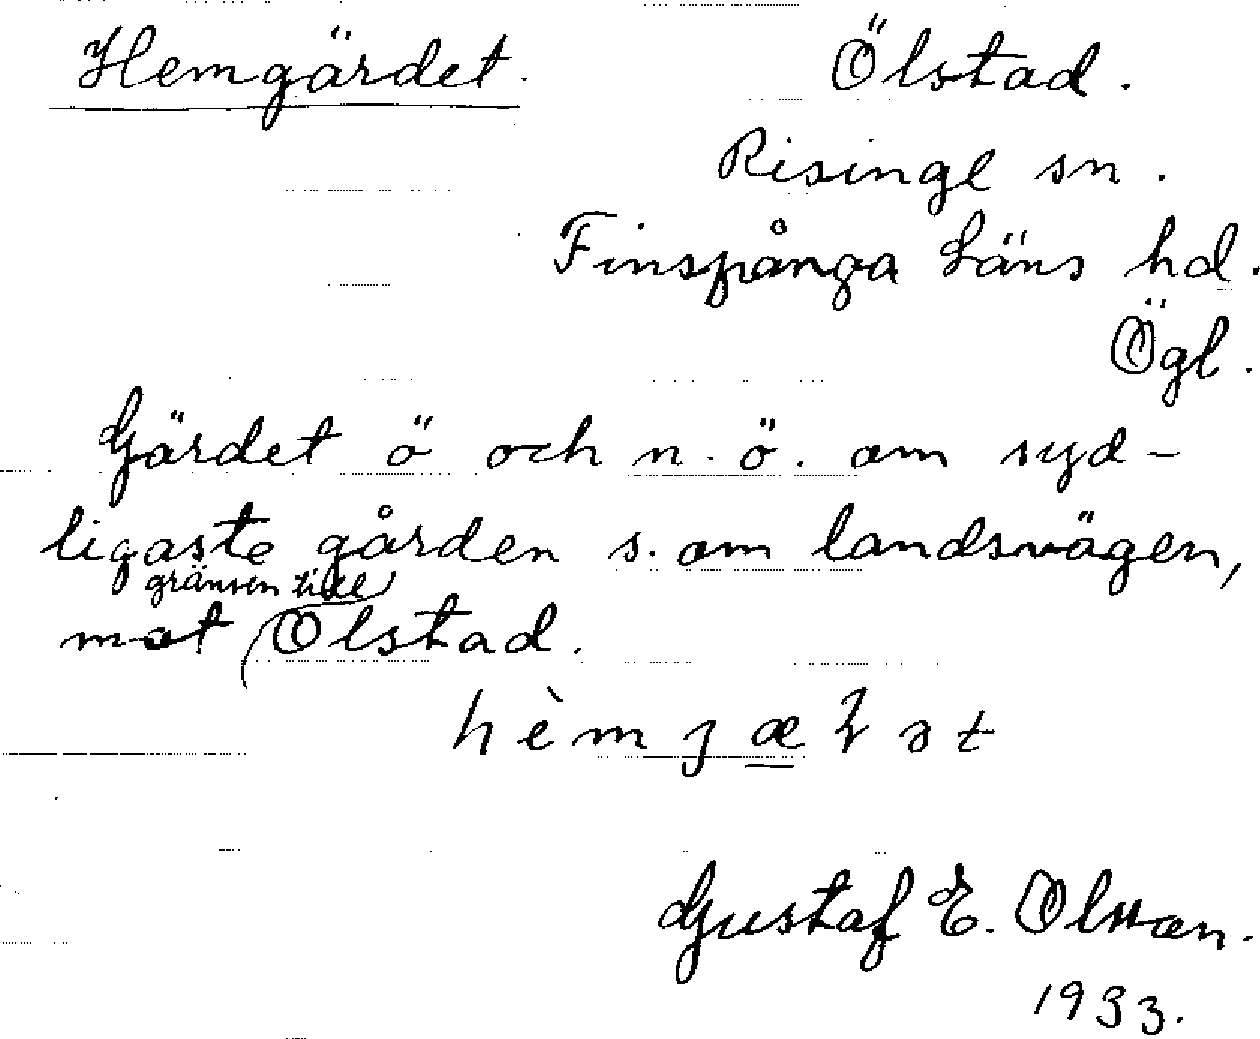 Hemgärdet.
Ölstad.
Risinge sn.
Finspånga läns hd.
Ögl.
Gärdet ö och n.ö. om syd-
ligaste gården s. om landsvägen,
gränsen till
mot Ölstad.
Gustaf E. Olsson.
1933.